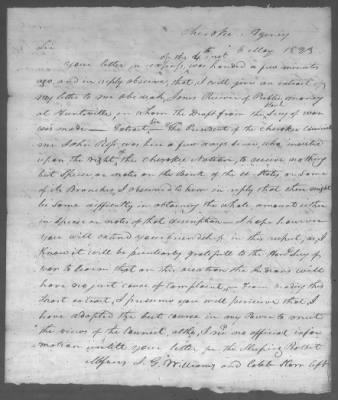 Cherokee Agency
6 May 1823
Sir
your letter in express of the 4th inst was handed a few minutes
ago, and in reply observe that I will give an extract of
my letter to Mr Obediah Jones Receiver of Public money
at Huntsville, on whom the Draft from the Secy of war
was made — Extract — The President of the cherokee council
Mr John Ross was here a few days since, who insisted
upon the right of the cherokee Nation, to receive nothing
but Specie or notes on the Bank of the U States, or some
of its Branches, I observed to him in reply that there might
be some difficulty in obtaining the whole amount either
in Specie or notes of that description — I hope however
you will extend your friendship in this respect, as I
know it will be peculiarly gratefull to the Hon Secy of
war to learn that on this occasion the Indians will
have no just cause of complaint, — From reading this
Short extract, I presume you will perceive that I
have adopted the best course in my Power to meet
the views of the Council, altho, I had no official infor
mation untill your letter per the Sleeping Rabbit
Messrs S. G. Williams and Caleb Starr left